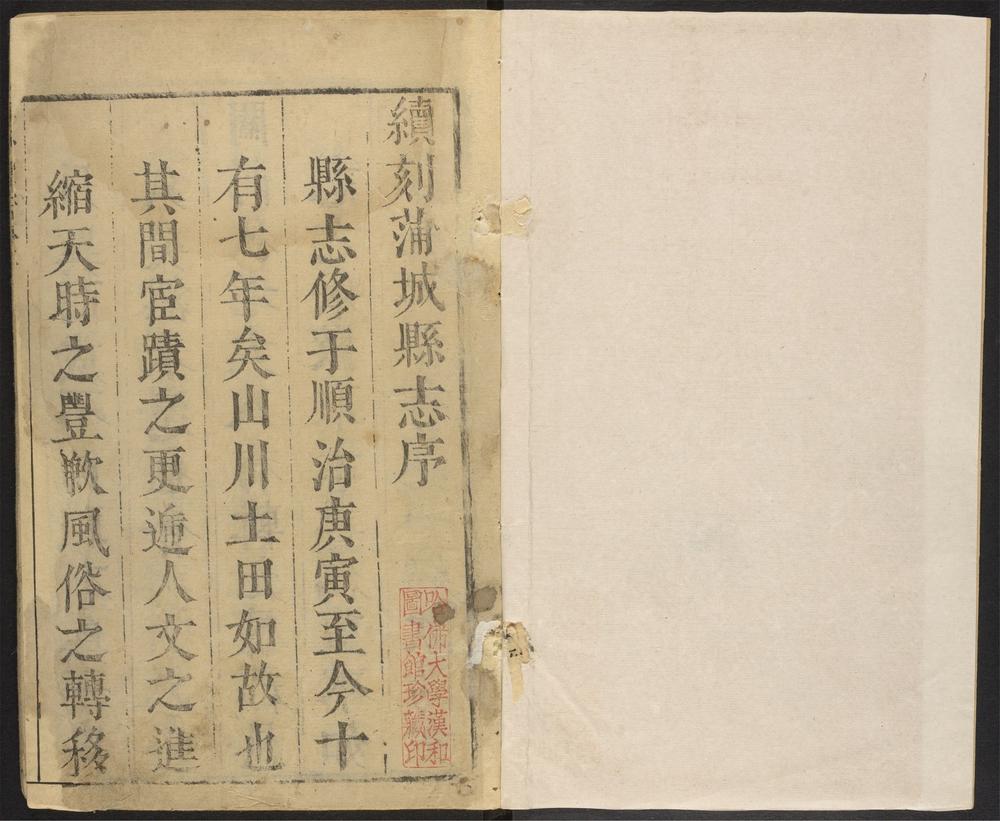 續刻蒲城縣志序
縣志修于順治庚寅至今十
有七年矣山川土田如故也
其間宦蹟之更遞人文之進
縮天時之豐歉風俗之轉移
哈佛大學漢和
圖書館珍藏印